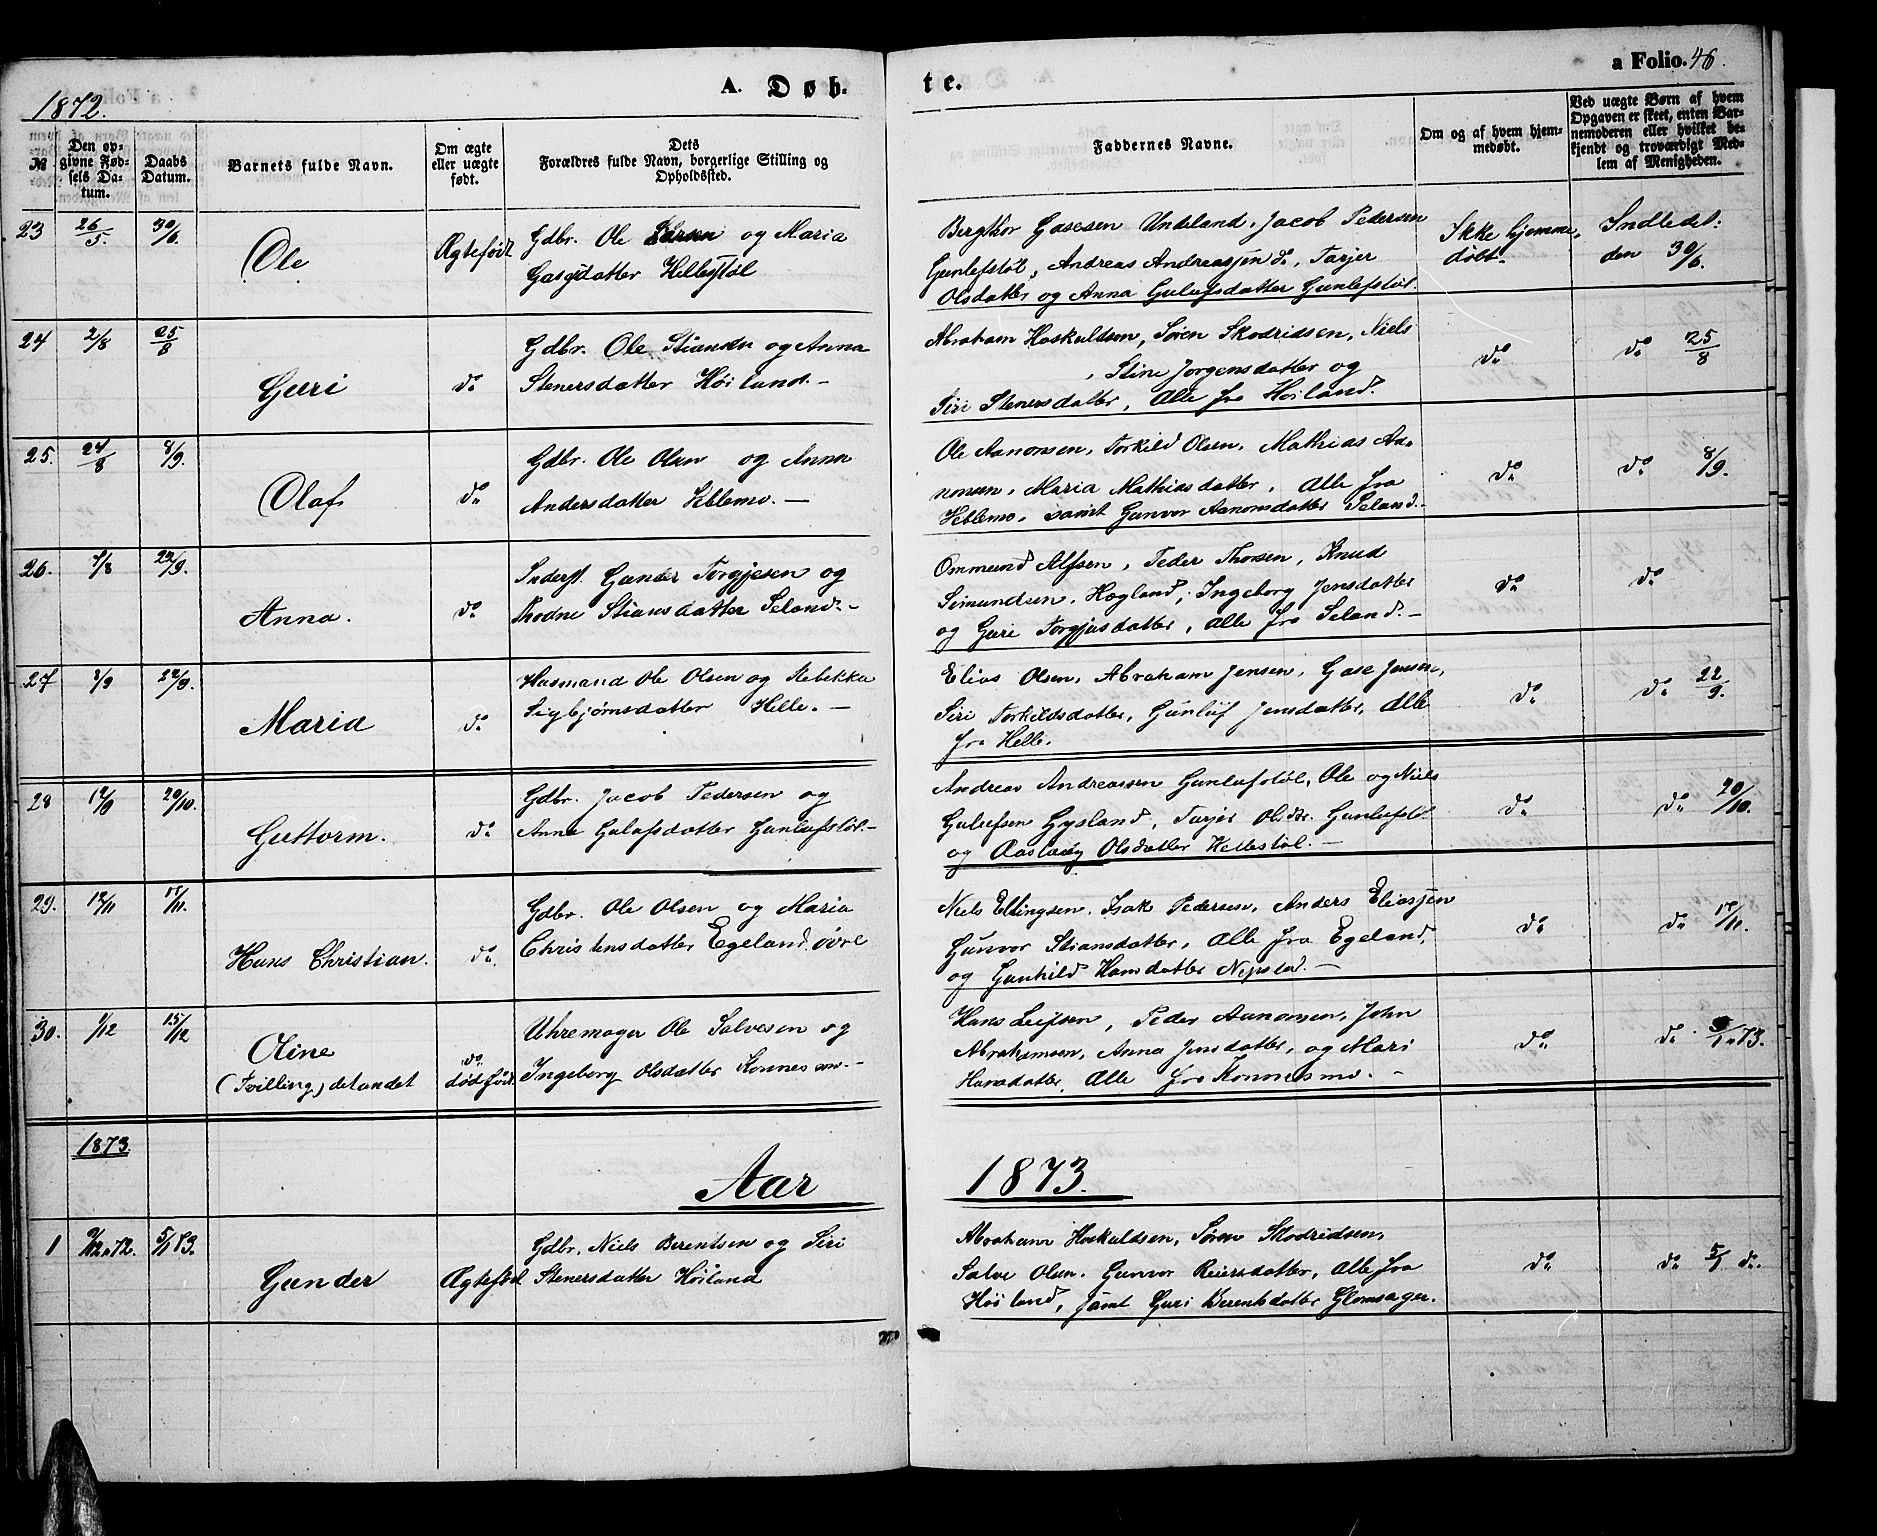 1872.
A. Døb-
te.
a Folio. 46.
№
Den op-
givne Fød-
sels Da-
tum.
Daabs
Datum.
Barnets fulde Navn.
Om ægte
eller uægte
født.
Dets
Forældres fulde Navn, borgerlige Stilling og
Opholdssted.
Faddernes Navne.
Om og af hvem hjem-
medøbt.
Ved uægte Børn af hvem
Opgaven er skeet, enten Bar-
nemoderen eller hvilket be-
kjendt og troværdigt Med-
lem af Menigheden.
23 26/5. 30/6.
Ole
Ægtefødt
Gdbr. Ole Larsen og Maria
Gasesdatter Hellestøl
Bergthor Gasesen Undeland, Jacob Pedersen
Gunlefstøl, Andreas Andreassen do, Tarjer
Olsdatter og Anna Gulufsdatter Gunlefstøl.
Ikke hjemme-
døbt.
Indledet:
den 30/6.
24 2/8 25/8
Guri
do
Gdbr. Ole Stiansen og Anna
Stenersdatter Høiland.-
Abraham Hoskuldsen, Søren Skodridsen, Niels
, Stine Jørgensdatter og
Siri Stenersdatter, Alle fra Høiland.
do
do 25/8
25. 24/8 8/9.
Olaf
do
Gdbr. Ole Olsen og Anna
Andersdatter Heblemo.-
Ole Aanonsen, Torkild Olsen, Mathias Aa-
nonsen, Maria Mathiasdatter, Alle fra
Heblemo, samt Gunvor Aanonsdatter Seland.
do
do 8/9.
26. 7/8 22/9.
Anna.
do
Inderst. Gunder Torgjesen og
Thodne Stiansdatter Seland.-
Ommund Alfsen, Peder Thorsen, Knud
Simundsen, Høgland, Ingeborg Jensdatter
og Guri Torgjusdatter, Alle fra Seland.-
do
do
27 8/9 22/9.
Maria
do
Husmand Ole Olsen og Rebekka
Sigbjørnsdatter Helle.-
Elias Olsen, Abraham Jensen, Gase Jensen,
Siri Torkildsdatter, Gunluf Jensdatter, Alle
fra Helle.
do
do 22/9.
28 12/9 20/10.
Guttorm.
do
Gdbr. Jacob Pedersen og
Anna Gulufsdatter Gunlufstøl.-
Andreas Andreassen Gunlufstøl, Ole og Niels
Gulufsen Gysland, Tarjer Olsdtr. Gunlufstl.
og Aaslaug Olsdatter Hellestøl.-
do
do 20/10.
29. 12/11 17/11.
Hans Christian.
do
Gdbr. Ole Olsen og Maria
Christensdatter Egeland, øvre
Niels Ellingsen, Isak Pedersen, Anders Eliassen
Gunvor Stiansdatter, Alle fra Egeland,
og Gunhild Hansdatter Nepstad.-
do
do 17/11.
30. 1/12 15/12
Oline
(Tvilling) det andet
do.
dødfødt.
Uhremager Ole Salvesen og
Ingeborg Olsdatter Konnesmo.-
Hans Leifsen, Peder Aanonsen, John
Abrahamsen, Anna Jensdatter, og Mari
Hansdatter, Alle fra Konnesmo.-
do
do 5/1 73.
1873.
Aar 1873.
1 9/12 72. 5/1 73.
Gunder
Ægtefød
Gdbr. Niels Berentsen og Siri
Stenersdatter Høiland
Abraham Hoskuldsen, Søren Skodridsen,
Salve Olsen. Gunvor Reiersdatter, Alle fra
Høiland, samt Guri Berentsdatter Glomsager.
do
do 5/1 do.